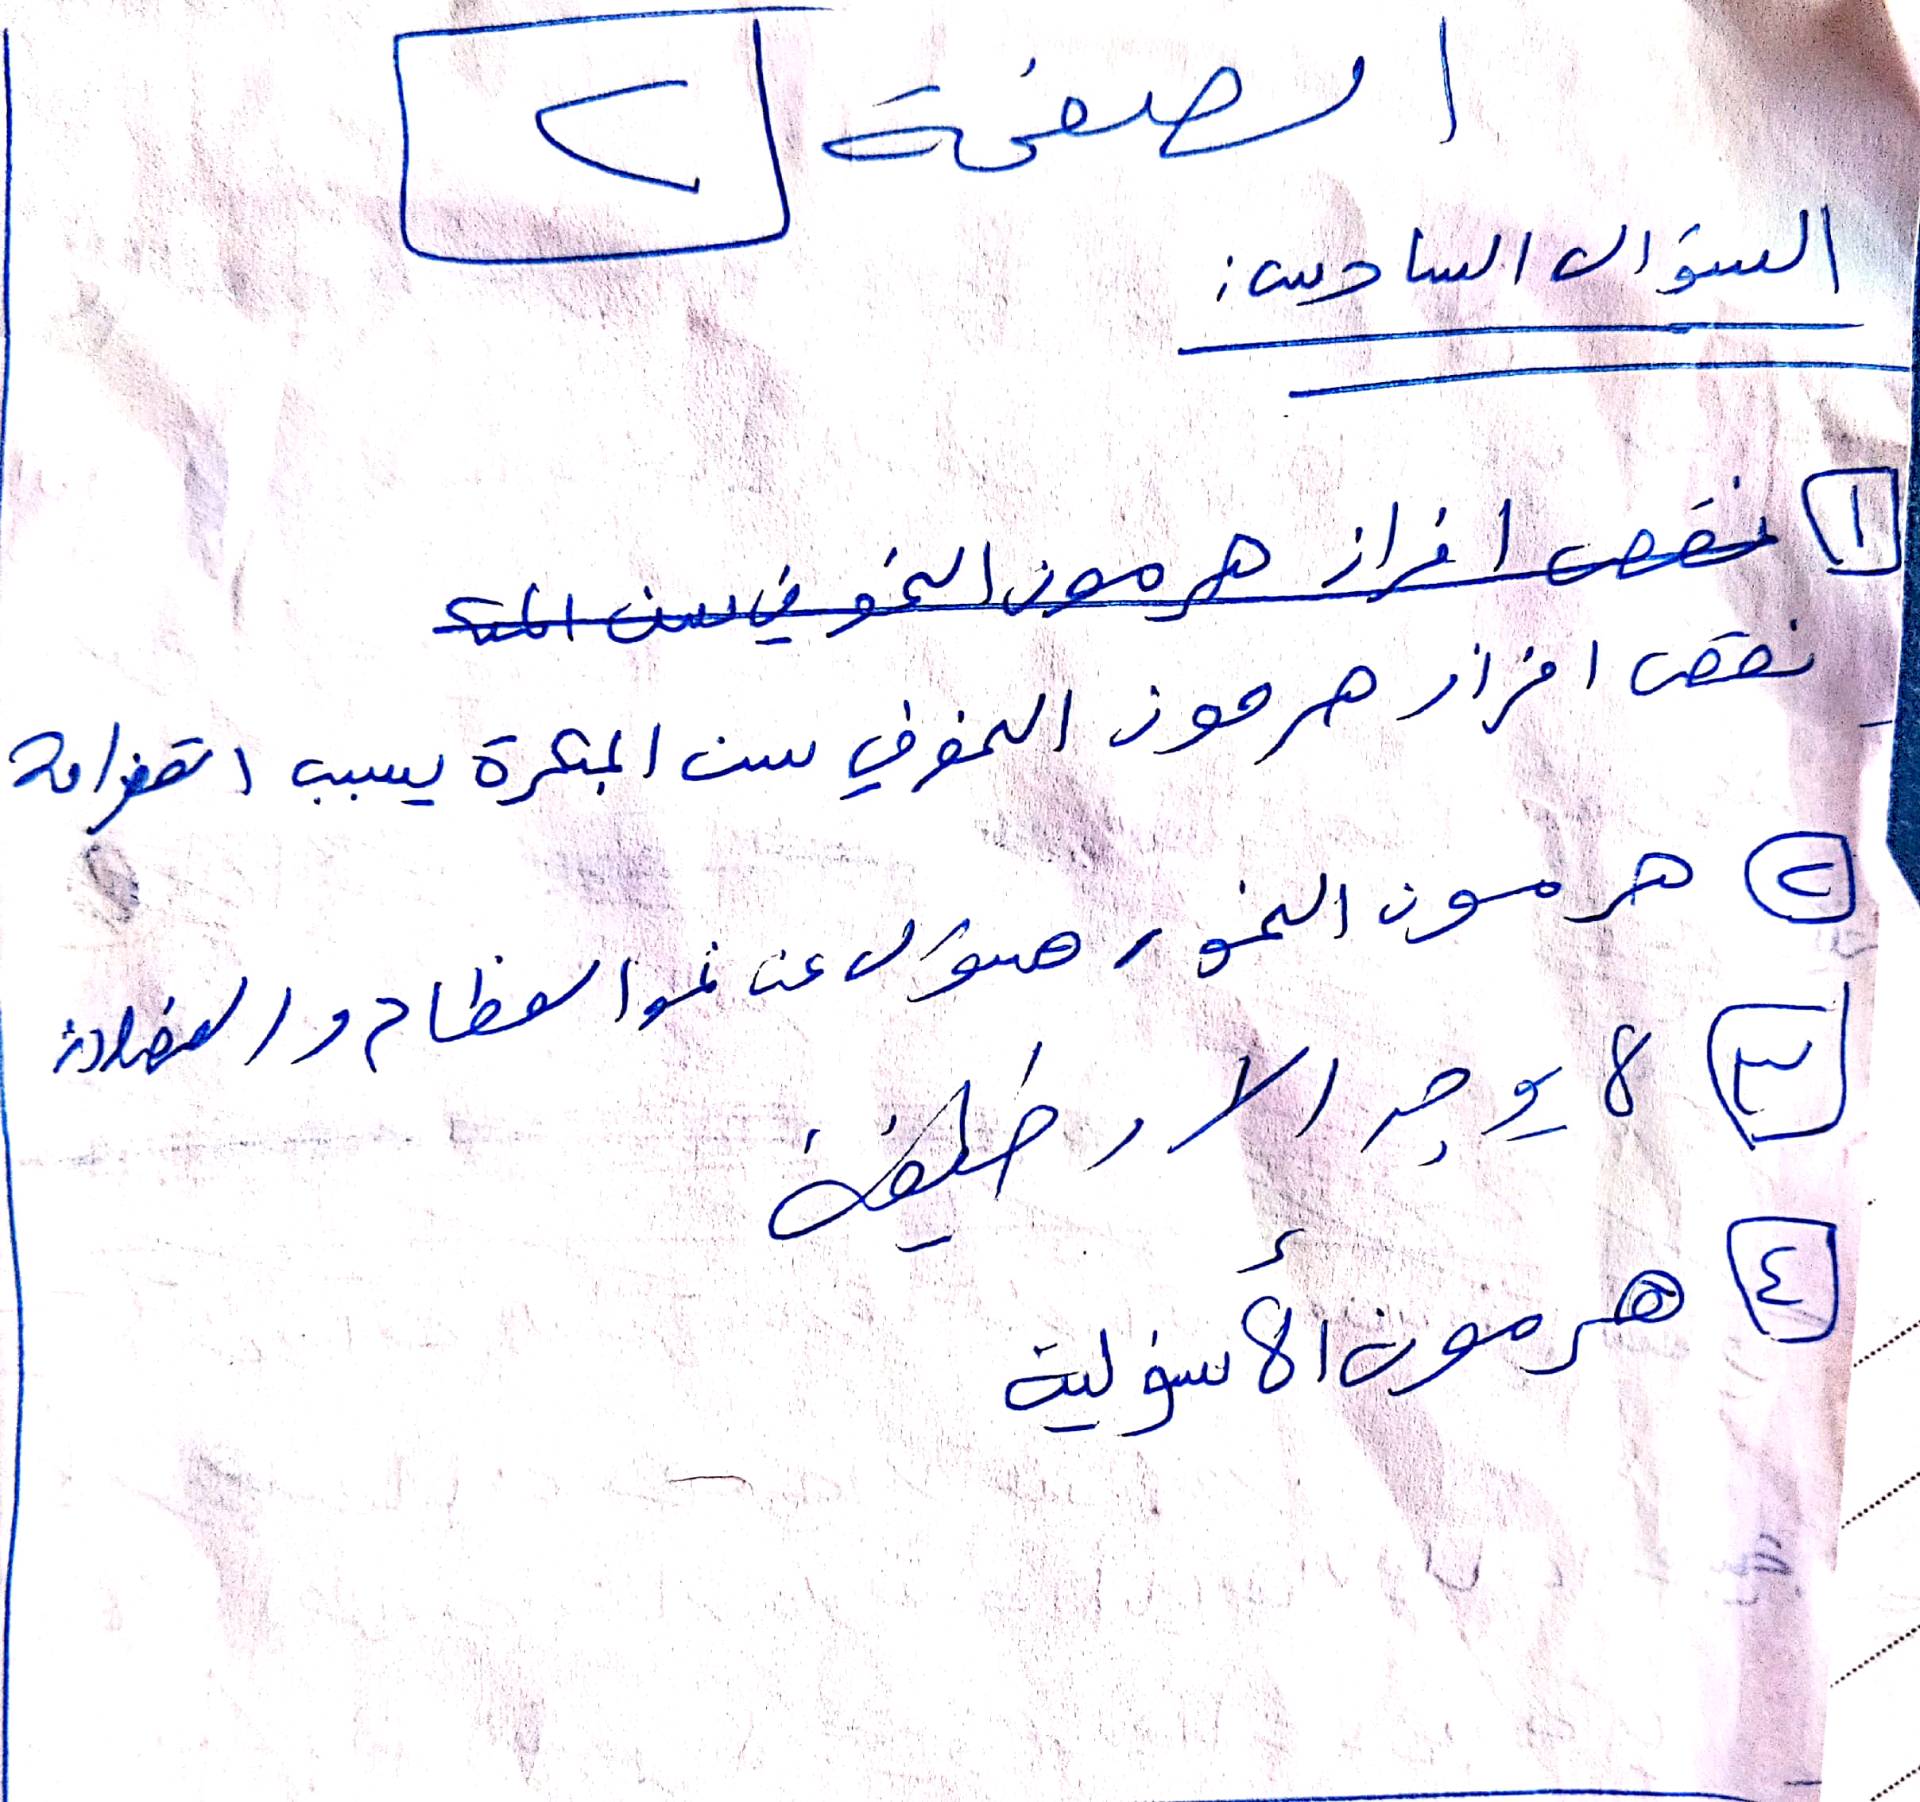 الصفحة ٢
السؤال السادس:
١ نقص افراز هرمون النمو في سن المبك
نقص افراز هرمون النمو في سن المبكرة يسبب القزامة
٢ هرمون النمو مسؤل عن نمو العظام و العضلات
٣ لا يوجد الا وظيفة
٤ هرمون الأ